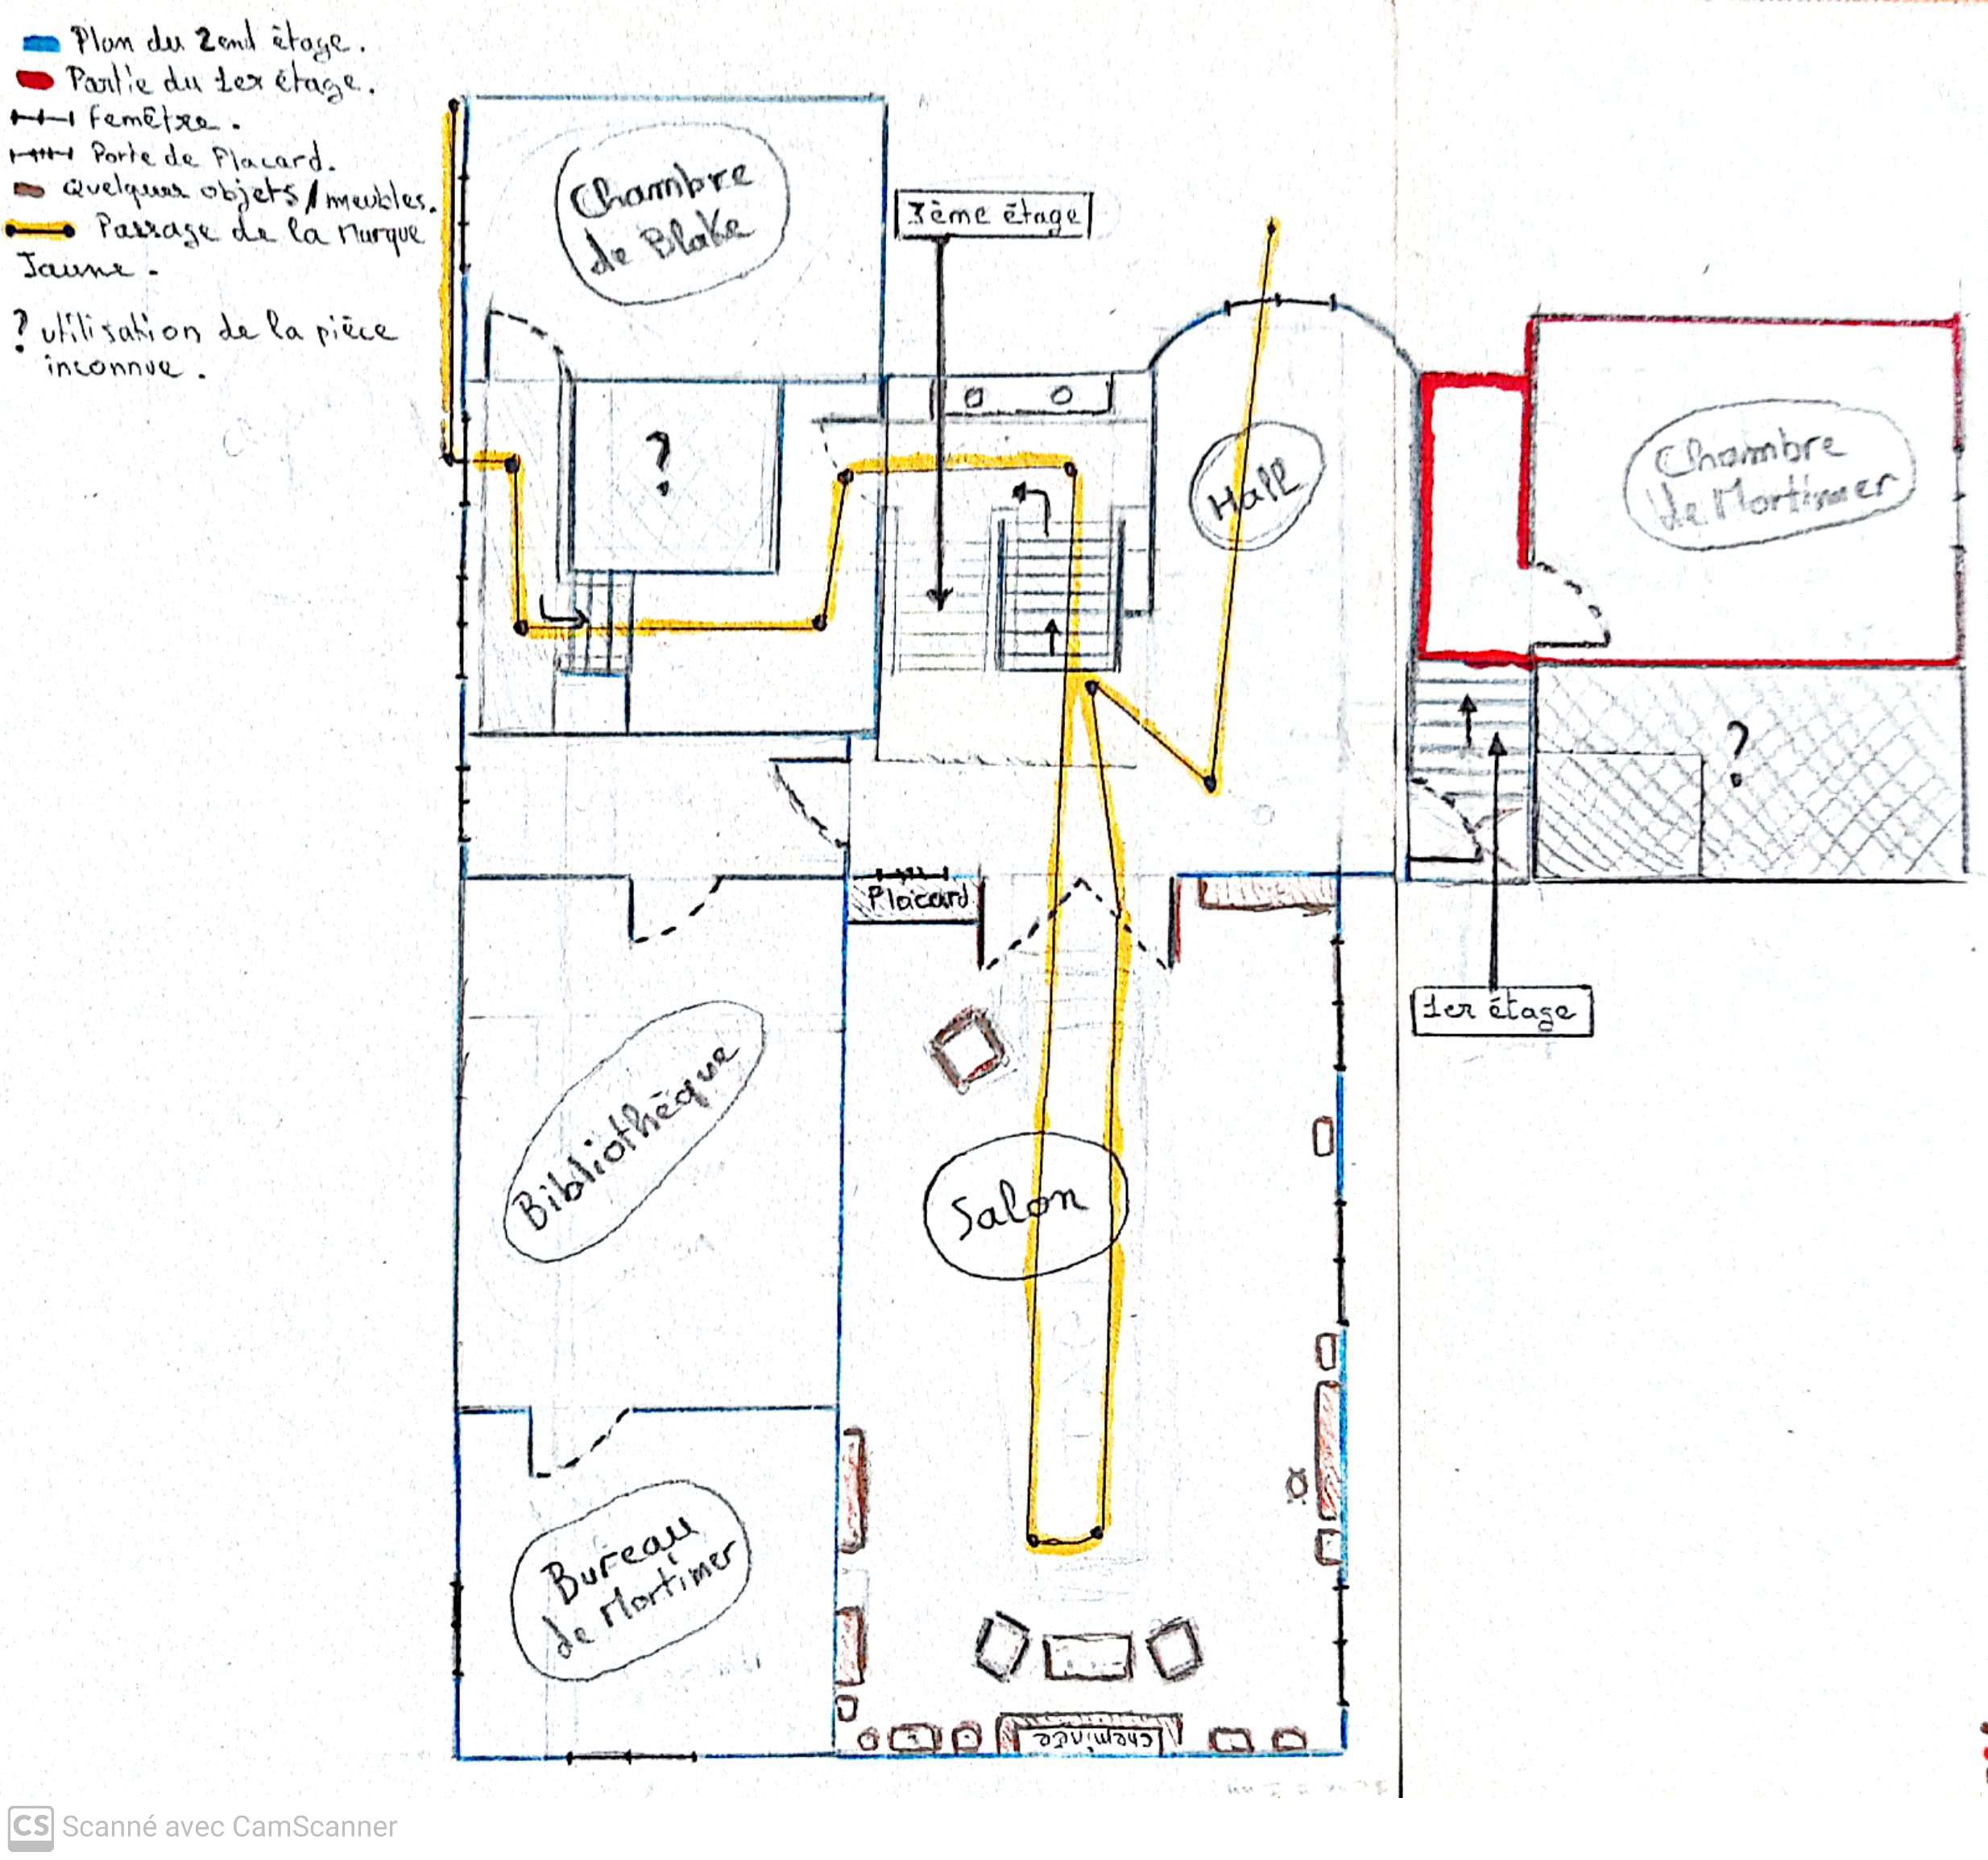 Plan du 2end étage.
Partie du 1er étage.
Fenêtre.
Porte de Placard.
Quelques objets/meubles.
Passage de la Marque
Jaune.
? utilisation de la pièce
inconnue.
Chambre
de Blake
3ème étage
?
Hall
Chambre
de Mortimer
?
Placard
1er étage
Bibliothèque
Salon
Bureau
de Mortimer
cheminée
CS Scanné avec CamScanner